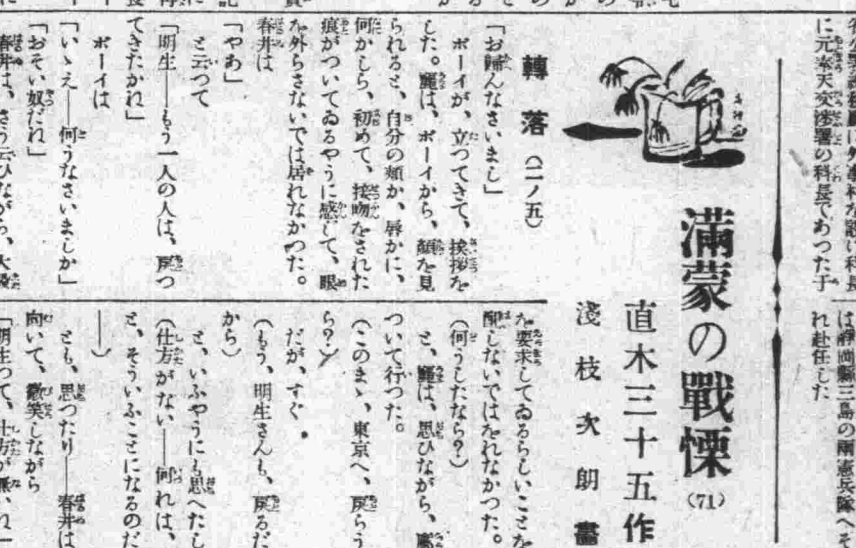 に元奉天交渉署の科長であつた于
は靜岡縣三島の兩憲兵隊へそ
れ赴任した
滿蒙の戰慄
(71)
直木三十五作
淺枝次朗畵
轉落(二ノ五)
「お歸んなさいまし」
ボーイが、立つてきて、挨拶を
した。麗は、ボーイから、顏を見
られると、自分の頬か、唇かに、
何かしら、初めて、接吻をされた
痕がついてゐるやうに感じて、眼
を外らさないでは居れなかつた。
春井は
「やあ」
と云つて
「明生――もう一人の人は、戻つ
てきたかね」
ボーイは
「いゝえ――何うなさいましか」
「おそい奴だね」
春井は、さう云ひながら、大
を要求してゐるらしいことを
しないではをれなかつた。
(何うしたなら?)
と、麗は、思ひながら、
ついて行つた。
(このまゝ、東京へ、戻らう
ら?)
だが、すぐ
(もう、明生さんも、戻るだ
から)
と、いふやうにも思へたし
(仕方がない――何れは、
と、そういふことになるのだ
――)
とも、思つたり――春井は
向いて、微笑しながら
「明生つて、仕方が無いね―